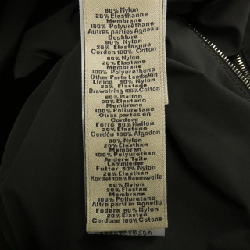 80% Nylon
20% Elasthanne
Membrane
100% Polyuréthane
Autres parties Agneau
Doublure
80% Nylon
20% Elasthanne
Cordon 100% Coton
80% Nylon
20% Elastane
Membrane
100% Polyurethane
Other Parts Lambskin
Lining 80% Nylon
20% Elastane
Drawstring 100% Cotton
80% Nylon
20% Elastam
Membrana
100% Poliuretano
Otras partes en
Cordero
Forro 80% Nailon
20% Elastano
Cordón 100% Algodon
80% Nylon
20% Elastane
Membran
100% Polyurethan
Andere Teile
Lammleder
Futter 80% Nylon
20% Elastane
Kordel 100% Baumwolle
80% Nylon
20% Elastane
Membrana
100% Poliuretano
Altre parti in Agnello
Fodera 80% Nylon
20% Elastane